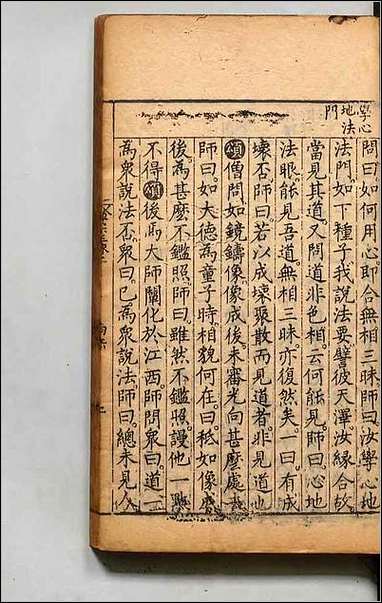 學心
地法
門
問曰如何用心即合無相三昧師曰汝學心地
法門如下種子我說法要譬彼天澤汝緣合故
當見其道又問道非色相云何能見師曰心地
法眼能見吾道無相三昧亦復然矣一曰有成
壞否師曰若以成壞聚散而見道者非見道也
頌僧問如鏡鑄像像成後未審光向甚麼處去
師曰如大德為童子時相貌何在曰秪如像成
後為甚麼不鑑照師曰雖然不鑑照謾他一點
不得頌後馬大師闡化於江西師問眾曰道一
為眾說法否眾曰已為眾說法師曰總未見人